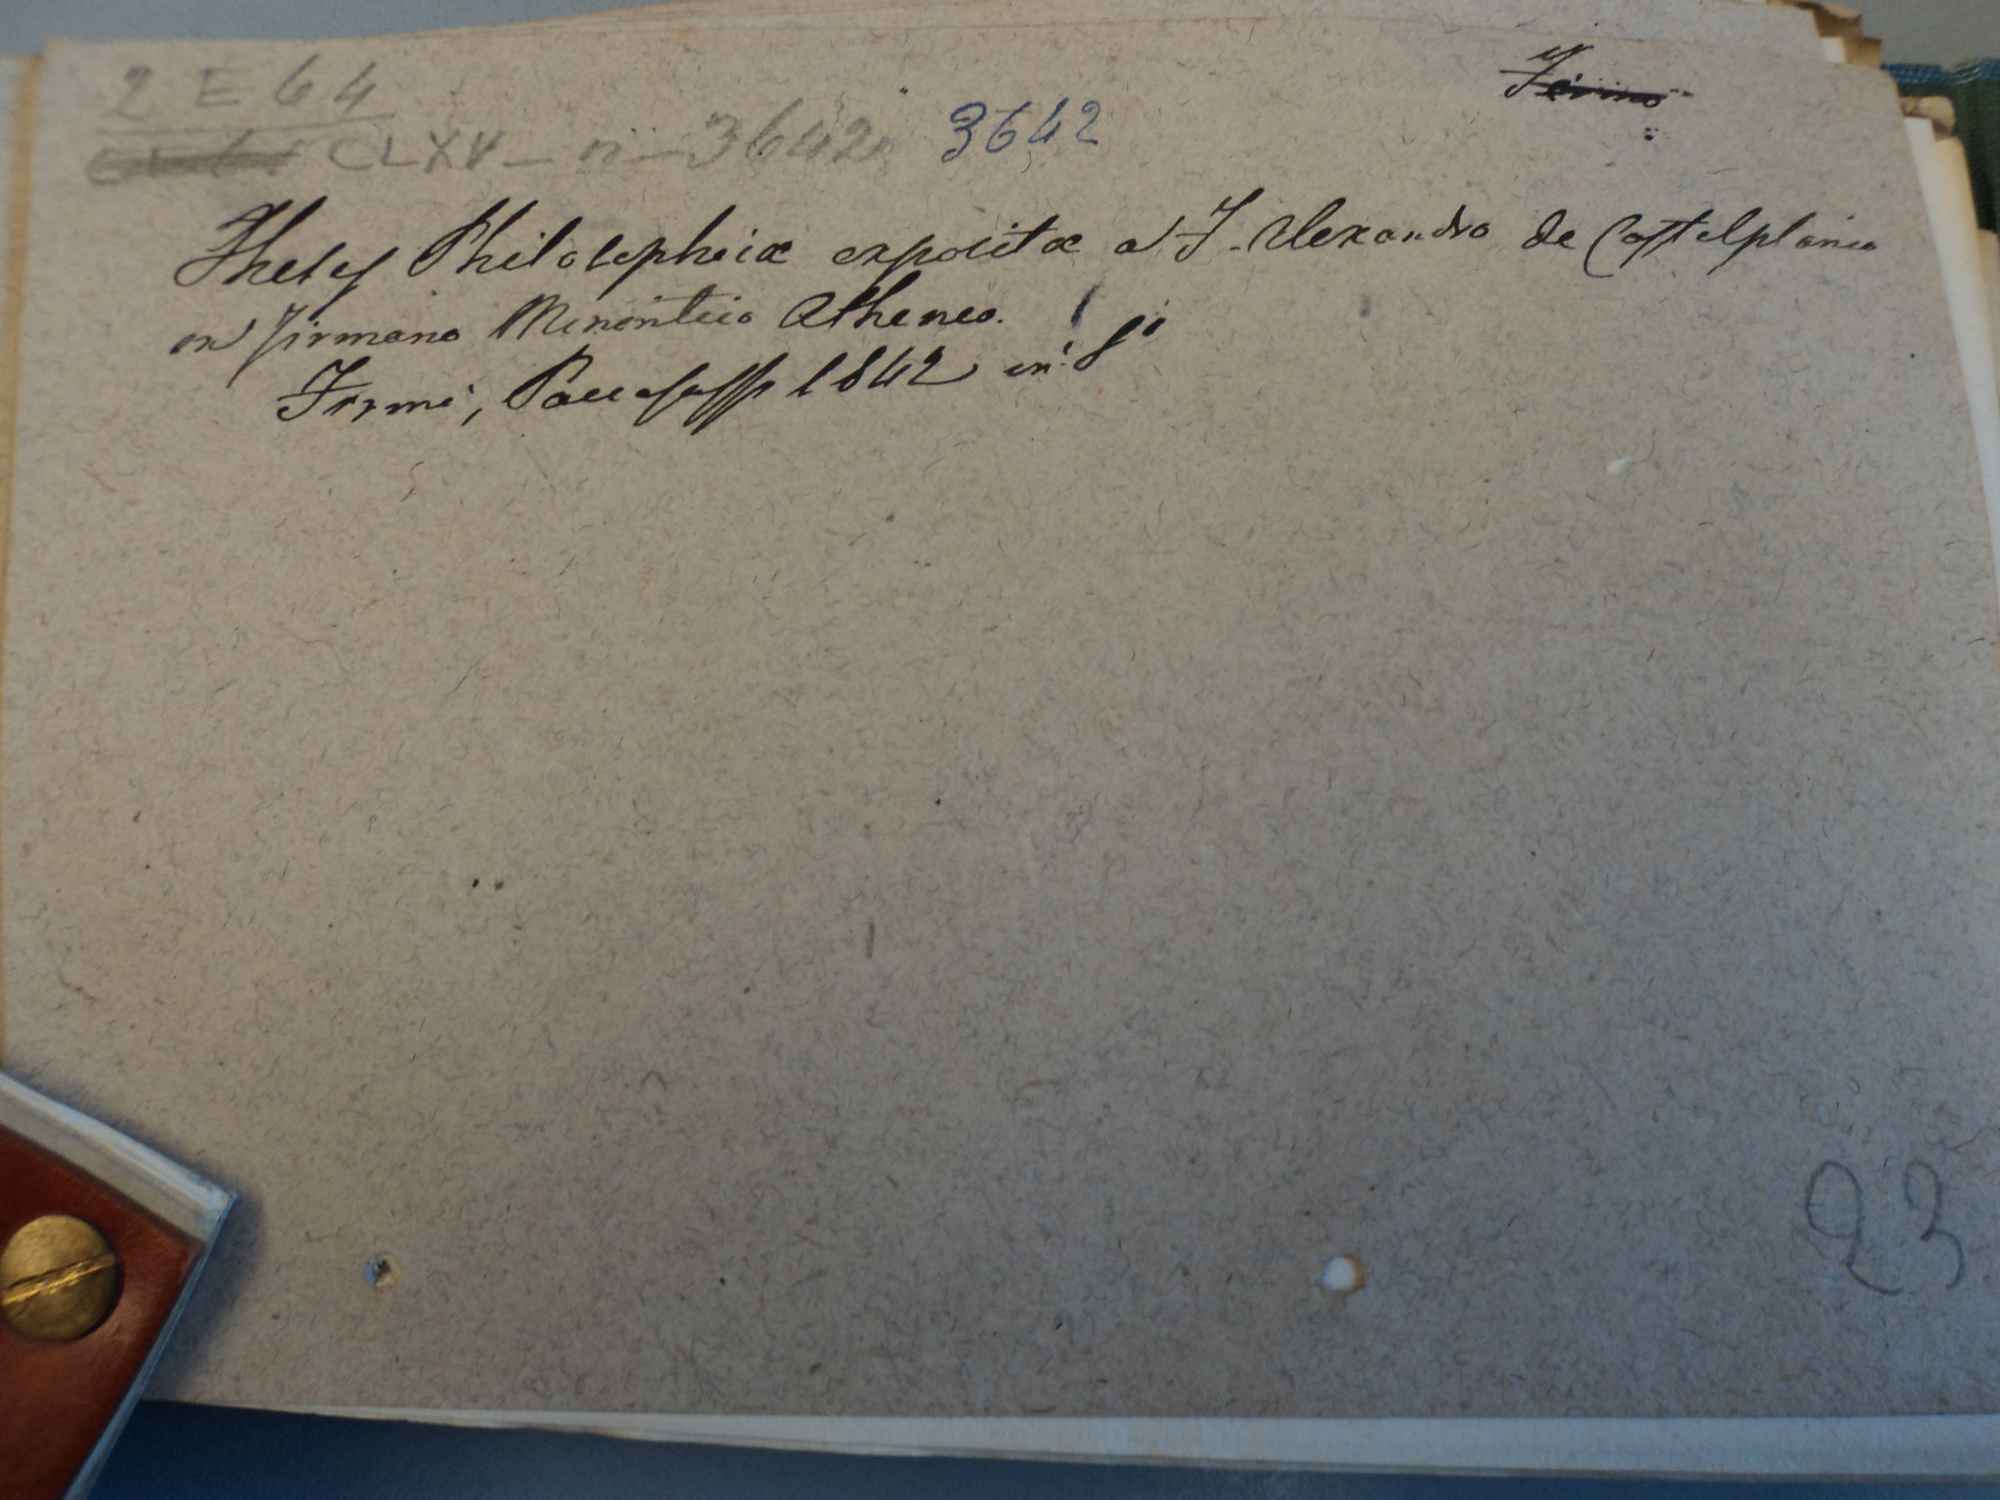 Fermo
2 E 64
CLXV - n - 3642 3642
Theses Philosophicæ expositæ a F. Alexandro de Castelplanio
in Firmano Minoritico Atheneo.
Firmi, Paccasassi 1842 in 8°
23